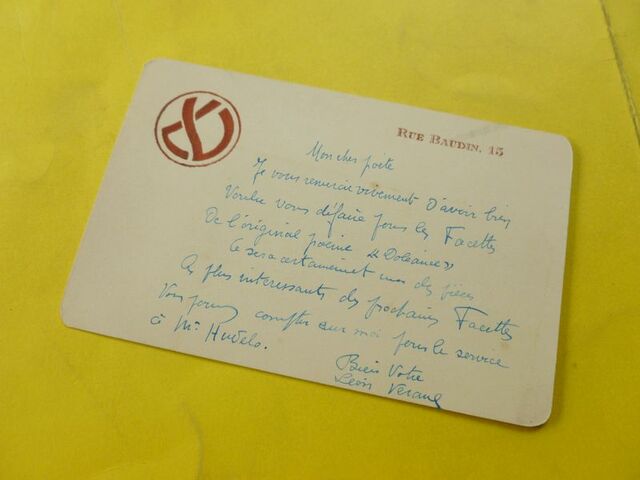 RUE BAUDIN, 15
Mon cher poète
Je vous remercie vivement d'avoir bien
voulu vous défaire pour les Facettes
De l'original poème "Doléance"
Ce sera certainement une des pièces
les plus intéressantes des prochaines Facettes
Vous pouvez compter sur moi pour le service
à Mr Hudelo.
Bien Votre
Léon Verane